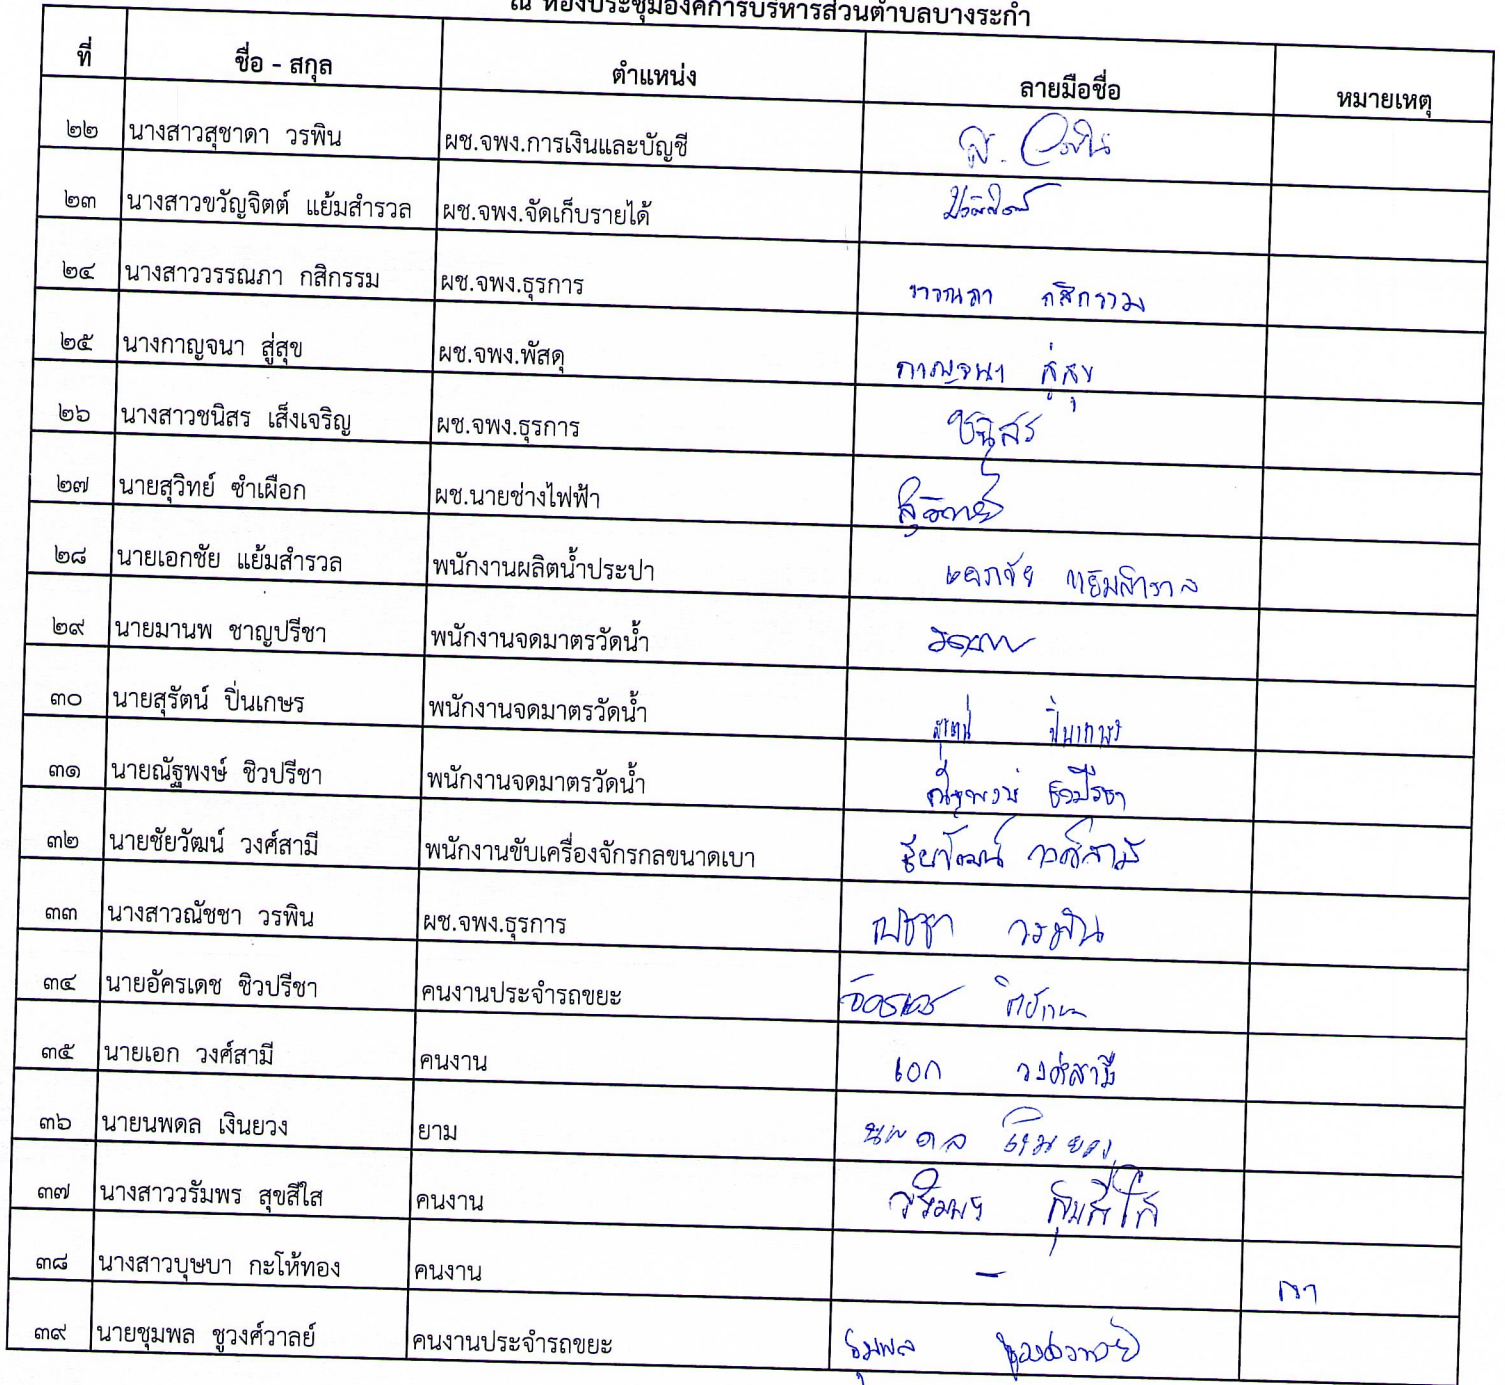 ณ ห้องประชุมองค์การบริหารส่วนตำบลบางระกำ
ที่ ชื่อ - สกุล ตำแหน่ง ลายมือชื่อ หมายเหตุ
๒๒ นางสาวสุชาดา วรพิน ผช.จพง.การเงินและบัญชี ส. วรพิน
๒๓ นางสาวขวัญจิตต์ แย้มสำรวล ผช.จพง.จัดเก็บรายได้
๒๔ นางสาววรรณภา กสิกรรม ผช.จพง.ธุรการ วรรณภา กสิกรรม
๒๕ นางกาญจนา สู่สุข ผช.จพง.พัสดุ กาญจนา สู่สุข
๒๖ นางสาวชนิสร เส็งเจริญ ผช.จพง.ธุรการ ชนิสร
๒๗ นายสุวิทย์ ซำเผือก ผช.นายช่างไฟฟ้า สุวิทย์
๒๘ นายเอกชัย แย้มสำรวล พนักงานผลิตน้ำประปา เอกชัย แย้มสำรวล
๒๙ นายมานพ ชาญปรีชา พนักงานจดมาตรวัดน้ำ
๓๐ นายสุรัตน์ ปิ่นเกษร พนักงานจดมาตรวัดน้ำ สุรัตน์ ปิ่นเกษร
๓๑ นายณัฐพงษ์ ชิวปรีชา พนักงานจดมาตรวัดน้ำ ณัฐพงษ์ ชิวปรีชา
๓๒ นายชัยวัฒน์ วงศ์สามี พนักงานขับเครื่องจักรกลขนาดเบา ชัยวัฒน์ วงศ์สามี
๓๓ นางสาวณัชชา วรพิน ผช.จพง.ธุรการ ณัชชา วรพิน
๓๔ นายอัครเดช ชิวปรีชา คนงานประจำรถขยะ อัครเดช
๓๕ นายเอก วงศ์สามี คนงาน เอก วงศ์สามี
๓๖ นายนพดล เงินยวง ยาม นพดล เงินยวง
๓๗ นางสาววรัมพร สุขสีใส คนงาน วรัมพร สุขสีใส
๓๘ นางสาวบุษบา กะโห้ทอง คนงาน - ลา
๓๙ นายชุมพล ชูวงศ์วาลย์ คนงานประจำรถขยะ ชุมพล ชูวงศ์วาลย์